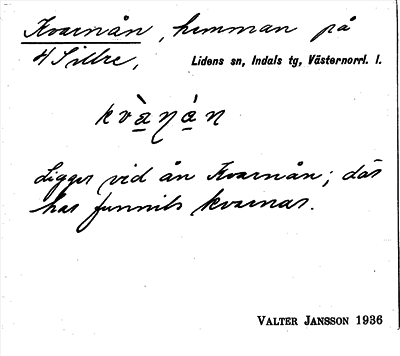 Kvarnån, hemman på
H Sillre, Lidens sn, Indals tg, Västernorrl. l.
kvà̲ŋá̲n
Ligger vid ån Kvarnån; där
har funnits kvarnar.
VALTER JANSSON 1936